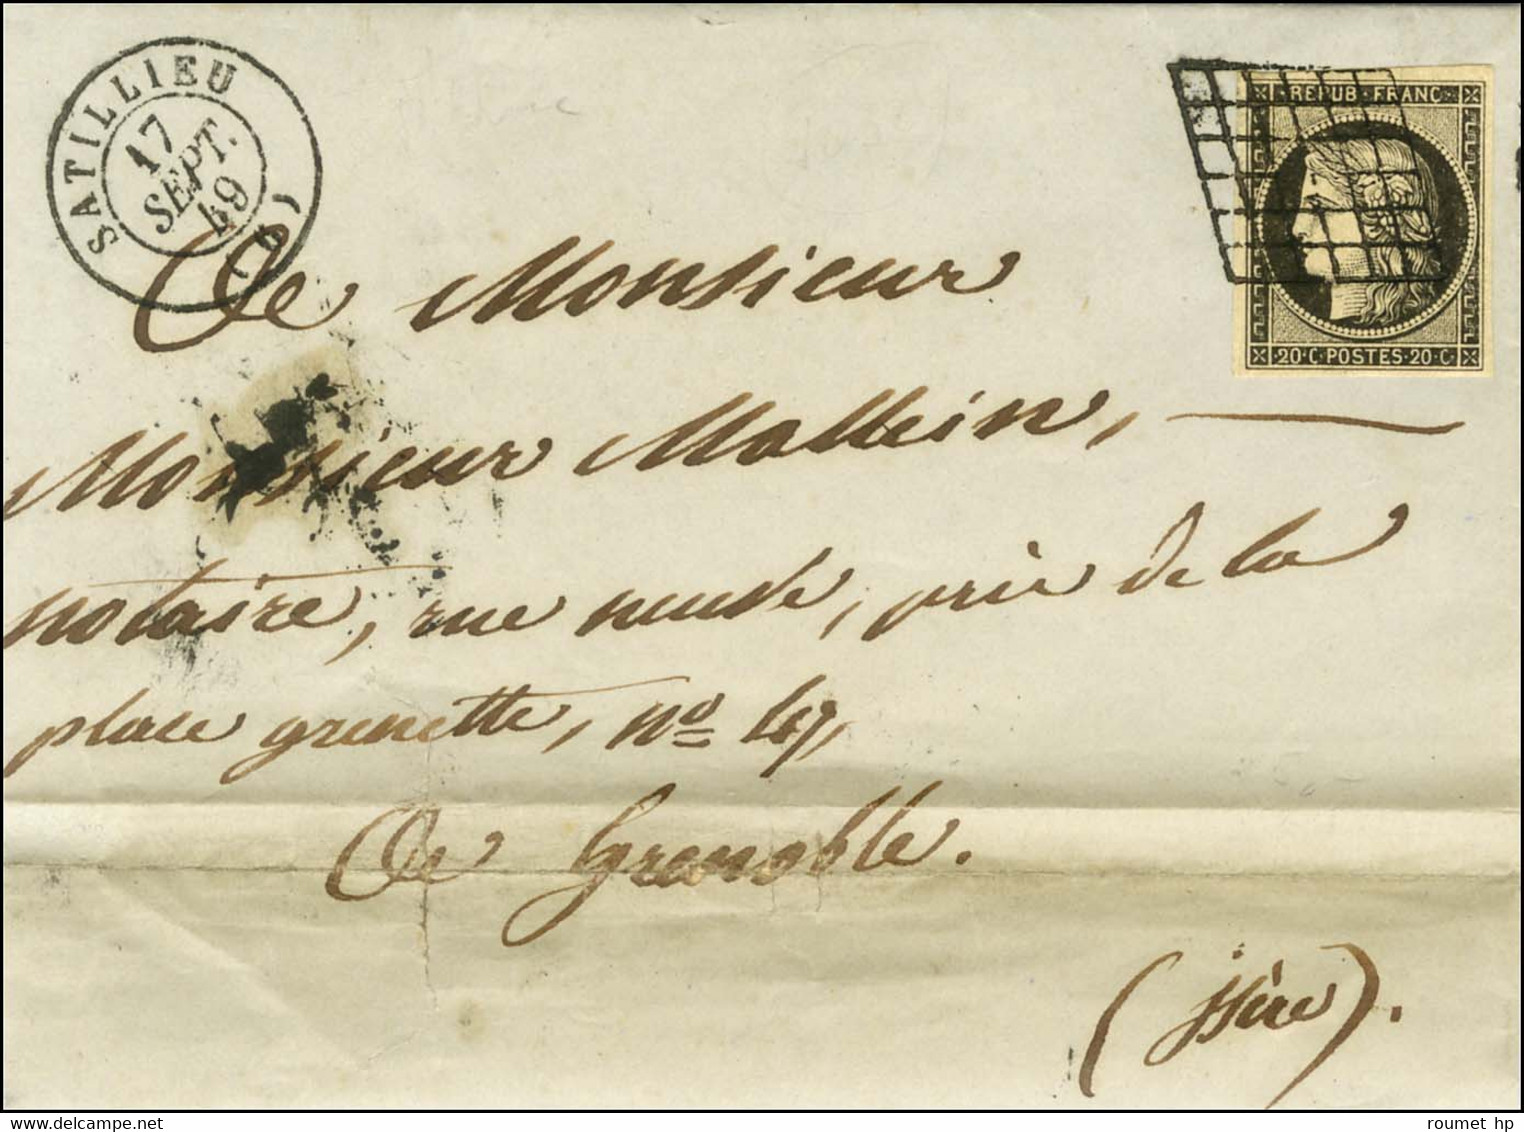 SATILLIEU
17
SEPT.
49
(6)
REPUB·FRANC
20·C·POSTES·20·C
A Monsieur
Monsieur Mallein,
notaire, rue neuve, près de la
place grenette, n° 47,
A Grenoble.
(isère).
roumet hp